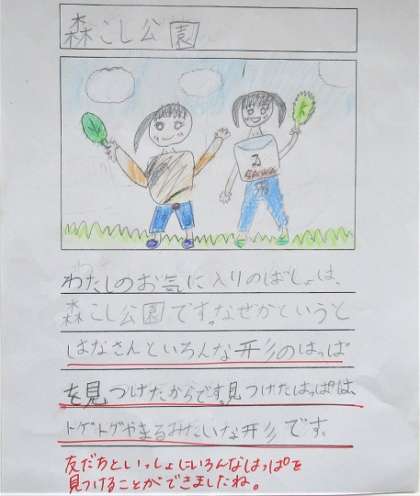 森こし公園
わたしのお気に入りのばしょは、
森こし公園です。なぜかというと
はなさんといろんな形のはっぱ
を見つけたからです。見つけたはっぱは、
トゲトゲやまるみたいな形です。
友だちといっしょにいろんなはっぱを
見つけることができましたね。